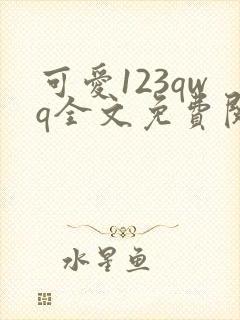 可愛123qw
q全文免費
水星鱼